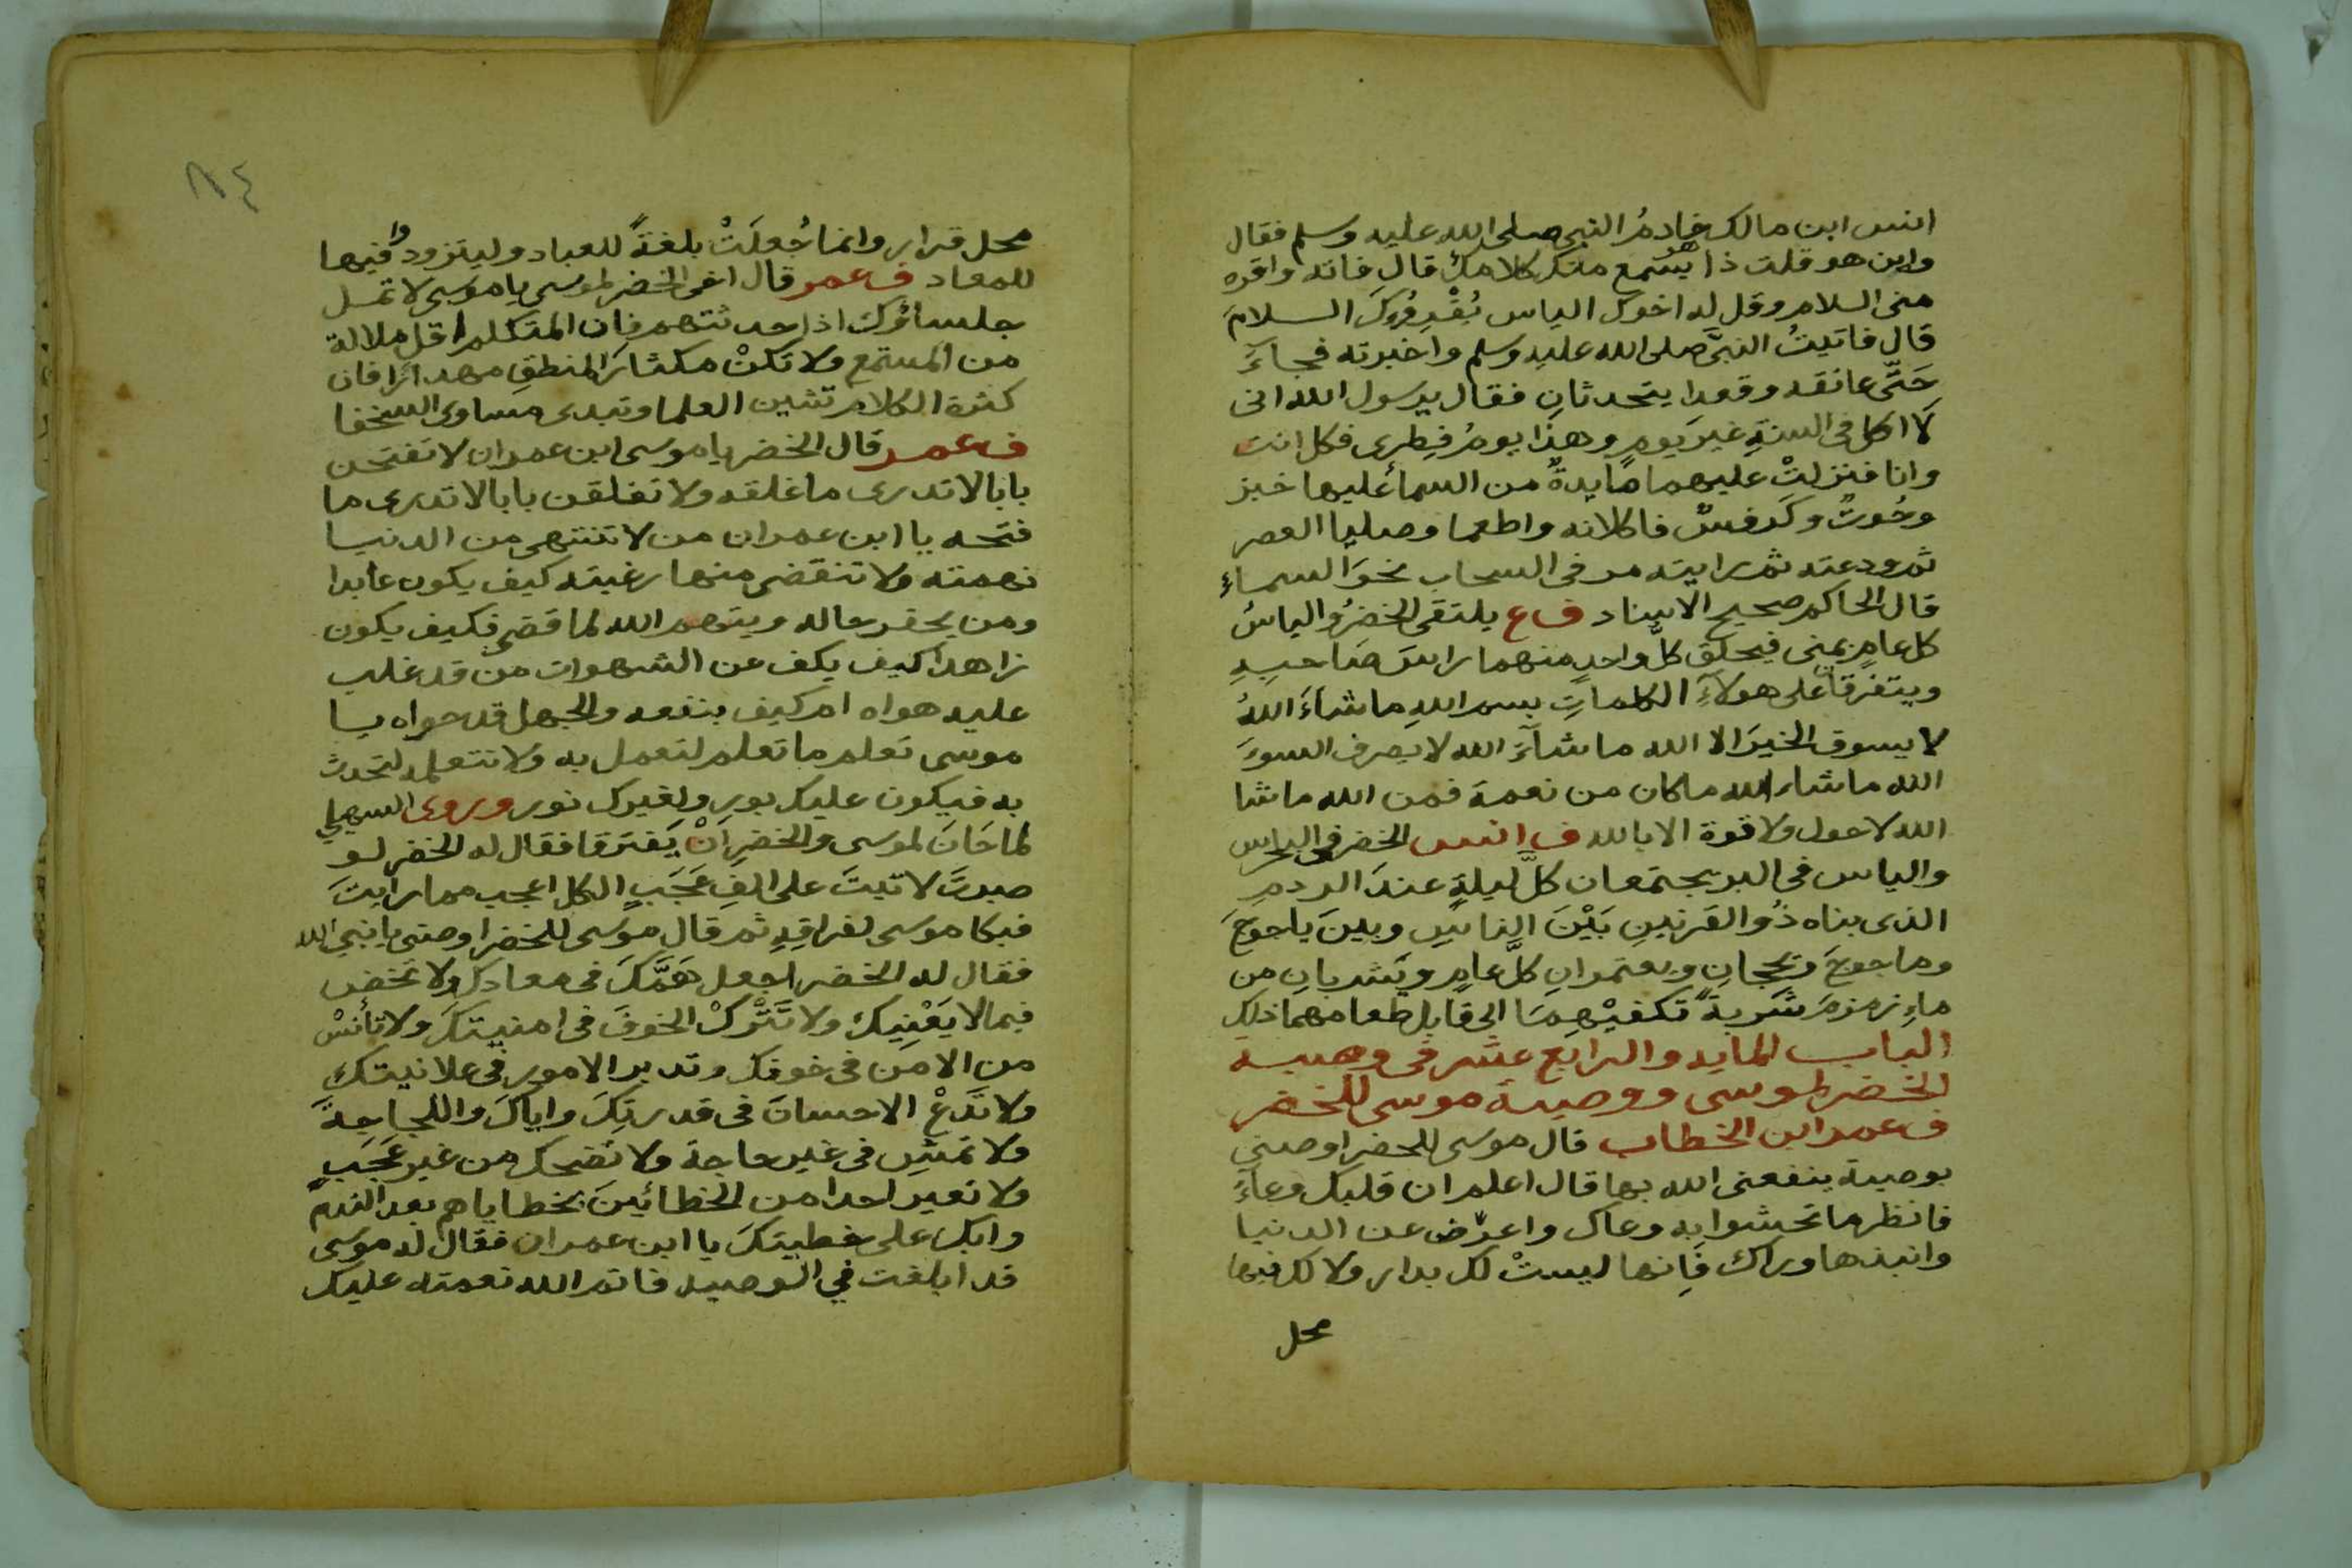 انس ابن مالك خادمُ النبي صلى الله عليه وسلم فقال
واين هو قلت ذا يسُتمع منك كلامك قال فاته واقره
منى السلام وقل له اخوك الياس يُقْرِوُكَ السلامَ
قال فاتيتُ النبيَّ صلى الله عليه وسلم واخبرته فجاءَ
حَتَّى عانقه وقعدا يتحدثانِ فقال يرسول الله انى
لَا اكل فى السنةِ غيرَ يومٍ وهذا يومُ فِطرى فكل انت
وانا فنزلتْ عليهما مايدةٌ من السماءُ عليها خبز
وحُوتٌ وكَرفسٌ فاكلانه واطعما وصليا العصر
ثم ودعته ثم رايته مر فى السحاب نحوَ السماءِ
قال الحاكم صحيح الاسناد ف ع يلتقى الخضرُ والياسُ
كل عامٍ بمنى فيحلق كلُّ واحدٍ منهما راسَ صَاحبِهِ
ويتفرقا على هولآءِ الكلماتِ بسم اللهِ ماشاءَ اللهُ
لا يسوق الخيرَ الا الله ماشآءَ الله لا يصرف السوءَ
الله ماشاء الله ماكان من نعمة فمن الله ماشا
الله لا حول ولا قوة الا بالله ف انس الخضر فى البحر
والياس فى البر يجتمعان كلَّ ليلةٍ عندَ الردمِ
الذى بناه ذُو القرنينِ بَيْنَ الناسِ وبينَ ياجوجَ
وماجوجَ ويحجانِ ويعتمرانِ كلَّ عامٍ ويَشربانِ من
ماءِ زمزمَ شَربةً تكفيْهِمَا الى قابل طعامهمَا ذلك
الباب المايه والرابع عشر فى وصية
الخضر لموسى ووصية موسى للخضر
ف عمر ابن الخطاب قال موسى للخضر اوصنى
بوصية ينفعنى الله بها قال اعلم ان قلبك وعاءً
فانظر ما تحشوا به وعاك واعرض عن الدنيا
وانبذها وراك فَاِنها ليستْ لك بدار ولا لك فيها
محل
٨٤
محل قرار وانما جُعلَتْ بلغةً للعباد وليتزودوا فيها
للمعاد ف عمر قال اخى الخضر لموسى يا موسى لا تمل
جلسائك اذا حدثتهم فان المتكلم اقل ملالة
من المستمع ولا تكنْ مكثارَ المنطقِ مهدارًا فان
كثرة الكلام تشين العلما وتبدى مساوى السخفا
ف عمر قال الخضر يا موسى ابن عمران لا تفتحن
بابا لا تدرى ما غلقه ولا تغلقن بابا لا تدرى ما
فتحه يا ابن عمران من لا تنتهى من الدنيا
نهمته ولا تنقضى منها رغبته كيف يكون عابدا
ومن يحقر حاله ويتهم الله لما قضى فكيف يكون
زاهدا كيف يكف عن الشهوات من قد غلب
عليه هواه ام كيف ينفعه والجهل قد حواه يا
موسى تعلم ما تعلم لتعمل به ولا تتعلمه لتحدث
به فيكون عليك بور ولغيرك نور وروى السهيلي
لما حَانَ لموسى والخضرِ اَنْ يَفترقا فقال له الخضر لو
صبرتَ لاتيتَ على الفِ عَجَبٍ الكل اعجب مما رايتَ
فبكا موسى لفراقِهِ ثم قال موسى للخضر اوصنى يا نبي الله
فقال له الخضر اجعل هَمَّكَ فى معادك ولا تخض
فيما لا يَعْنِيك ولا تَتْركْ الخوفَ فى امنيتكَ ولا تأنسْ
من الامن فى خوفك وتدبر الامور فى علانيتكِ
ولا تَدَعْ الاحسانَ فى قدرتِكَ واياكَ واللجاجةَ
ولا تمشِ فى غير حاجة ولا تضحك من غير عَجَبٍ
ولا تعير احدا من الخطائينَ بخطاياهم بعد الندم
وابك على خطيتكَ يا ابن عمران فقال له موسى
قد ابلغت في الوصيه فاتم الله نعمته عليك